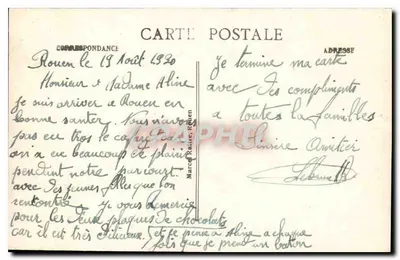 CARTE POSTALE
CORRESPONDANCE
ADRESSE
Rouen le 19 Août 1930
Monsieur et Madame Aline
je suis arriver a Rouen en
bonne santer. Nous n'avons
pas eu tros le
on a eu beaucoup de plaint
pendent notre parcourt
avec des jeunes filles que l'on
rencontre. je vous remerie
pour les deux plaques de chocolats
car il est très délicieux,
et je pense a Aline a chaque
fois que je prend un baton
Marcel Raine, Rouen
je termine ma carte
avec des compliments
a toutes la familles
Sinsère Amitier